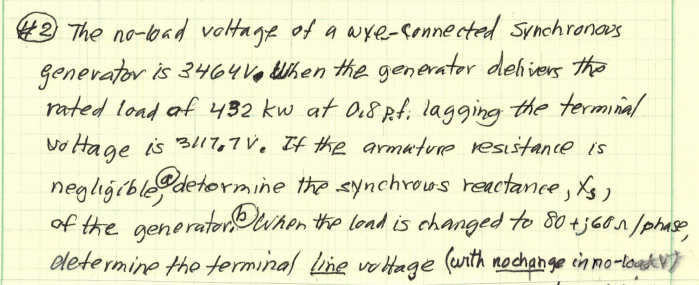 #2 The no-load voltage of a wye-connected synchronous
generator is 3464V. When the generator delivers the
rated load of 432 kw at 0.8 p.f. lagging the terminal
voltage is 3117.7V. If the armature resistance is
negligible, ⓐ determine the synchrous reactance, Xs,
of the generator. ⓑ When the load is changed to 80+j60Ω/phase,
determine the terminal line voltage (with no change in no-load V)